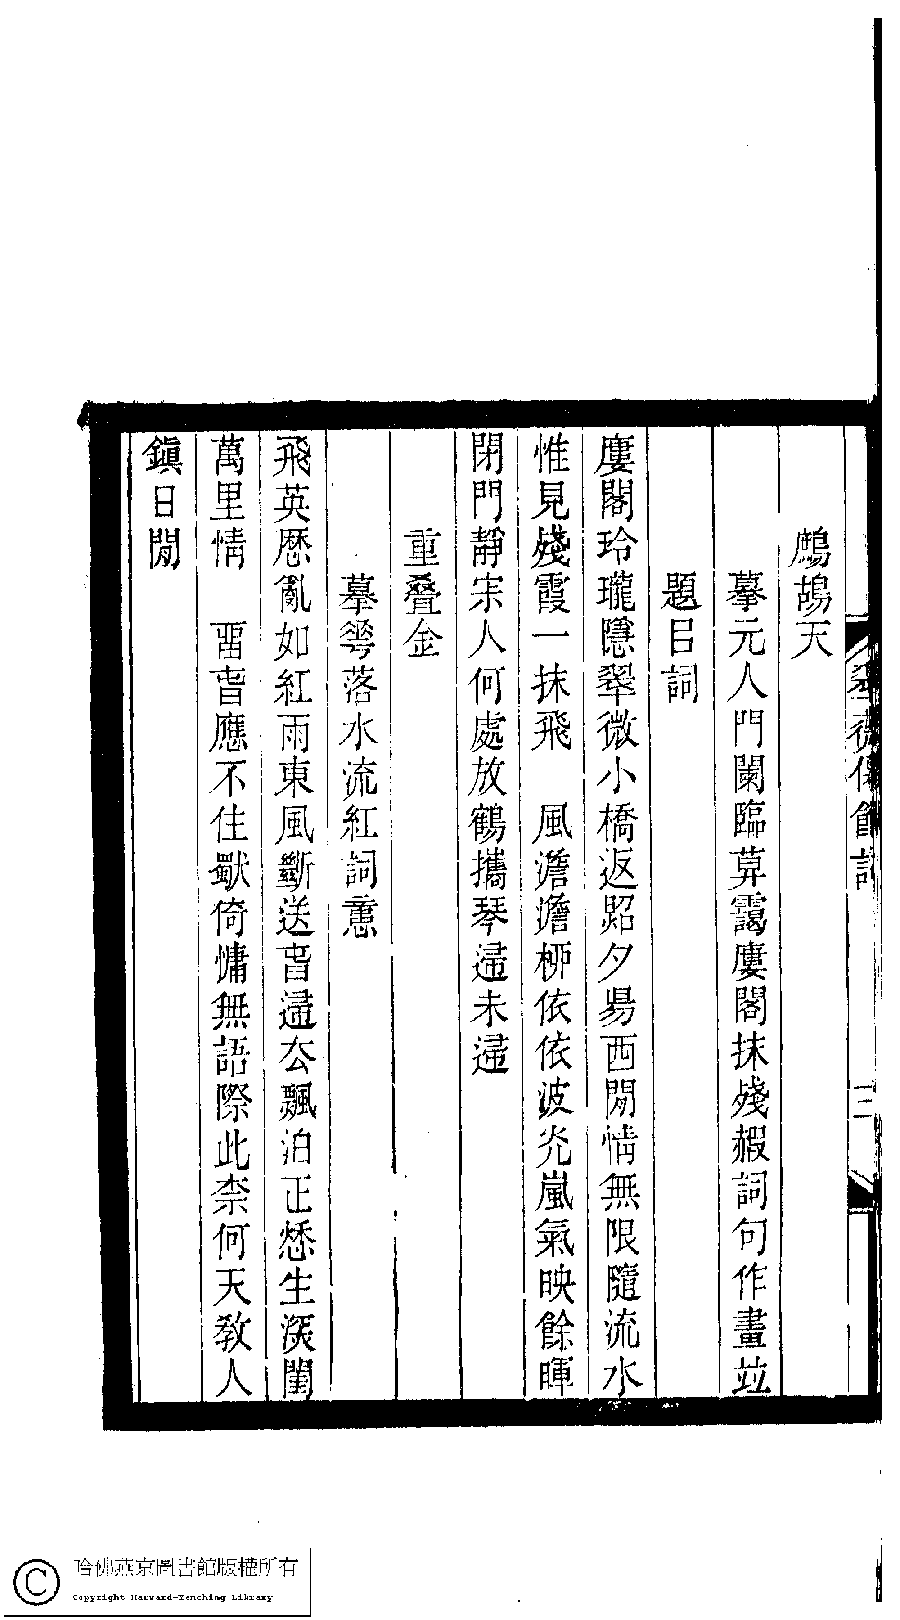 翠薇僊館詞
三
鷓鴣天
摹元人門闌臨莽靄廔閣抹殘赮詞句作畫竝
題㠯詞
廔閣玲瓏隱翠微小橋返照夕昜西閒情無限隨流水
惟見殘霞一抹飛　風澹澹柳依依波光嵐氣映餘暉
閉門靜寂人何處放鶴攜琴歸未歸
重叠金
摹雩落水流紅詞意
飛英歷亂如紅雨東風斷送旾歸去飄泊正愁生深閨
萬里情　畱旾應不住倚慵無語際此柰何天教人
鎮日閒
哈佛燕京圖書館版權所有
Copyright Harvard-Yenching Library